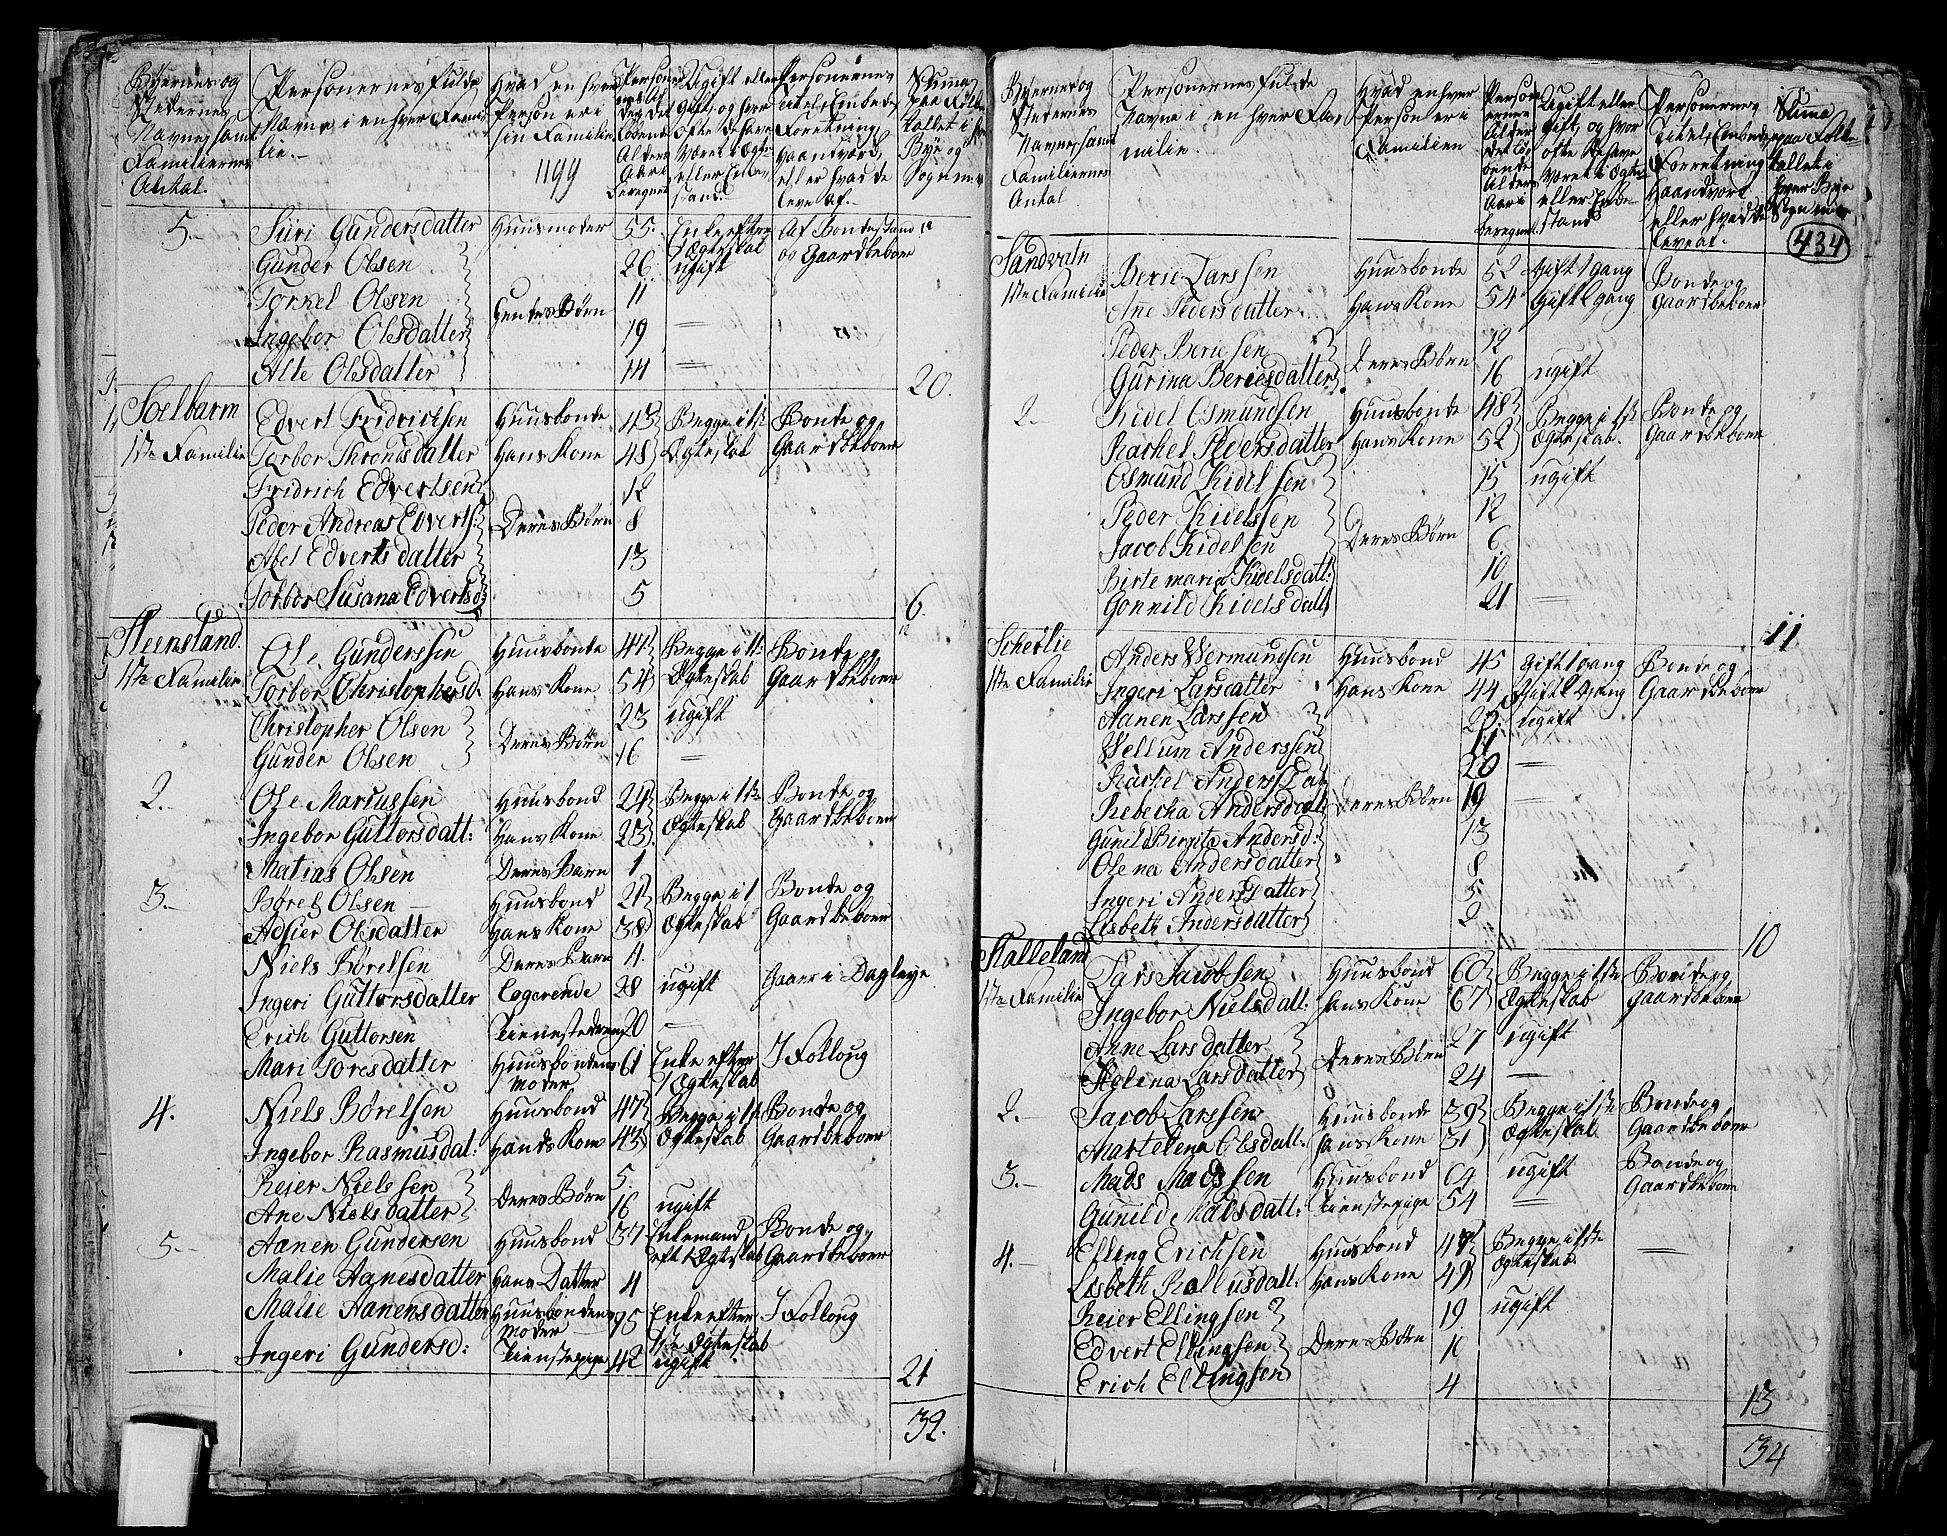 Byernes og Stedernes Navne, samt Familiernes Antal.
Personernes fulde Navne i en hver Familie.
Hvad en hver Person er i sin Familie
1199
Personernes Alder det løbende Alders Aar i beregnet
Ugift eller Gift, og hvor ofte de have været i Ægte- eller Enkestand.
Personernes Titel, Embede, Forretning, Haandværk, eller hvad de leve af.
Suma paa Folketallet i hver Bye og Sogn
5. Siiri Gundersdatter Huusmoder 55 Enke efter 1 Ægteskab Af Bondestand og Gaardbeboer
Gunder Olsen 26 ugift
Torkel Olsen 11
Hendes Børn
Ingebor Olsdatter 19 —
Alte Olsdatter 14 —
20.
Soelbarm
1ste Familie Edvert Fridrichsen Huusbonde 43 Begge i 1ste Ægteskab Bonde og Gaardbeboer
Torbor Thronsdatter Hans Kone 48
Fridrich Edvertsen 12
Peder Andreas Edverts: Deres Børn 8
Abel Edverts datter 13
Torbor Susana Edvertsd: 5
6.
Steensland.
1ste Familie Ole Gunderssen Huusbonde 44 Begge i 1te Ægteskab Bonde og Gaardbeboer
Torbor Christophersd: Hans Kone 54
Christopher Olsen 23 ugift
Deres Børn
Gunder Olsen 16 —
2. Ole Marcussen Huusbond 24 Begge i 1ste Ægteskab Bonde og Gaardbeboer
Ingebor Guttorsdatt: Hans Kone 25
Matias Olsen Deres Barn 1
3. Børel Olsen Huusbond 27 Begge i 1 Ægteskab Bonde og Gaardbeboer
Adsier Olsdatter Hans Kone 38
Niels Børelsen Deres Barn 4.
Ingeri Guttorsdatter Logerende 28 ugift Gaaer i Dagleye
Erich Guttorsen Tienestedreng 20 —
Mari Toresdatter Huusbondens Moder 61 Enke efter 1 Ægteskab I Folloug
4. Niels Børelsen Huusbond 47 Begge i 1st Ægteskab Bonde og Gaardbeboer
Ingebor Rasmusdat: Hands Kone 43
Reier Nielssen 5.
Deres Børn
Ane Nielsdatter 16 ugift
5. Aanen Gundersen Huusbond 37 Enkemand eft 1 Ægteskab Bonde og Gaardbeboer
Malie Aanesdatter Hans Datter 4
Malie Aanensdatter Huusbondens Moder 75 Enke efter 1ste Ægteskab I Folloug
Ingeri Gundersd: Tienestepige 42 ugift
21
32.
Byernes og Stedernes Navne, samt Familiernes Antal
Personernes fulde Navne i en hver Familie.
Hvad enhver Person er i Familien
Personernes Alder det løbende Alders Aar i beregnet
Ugift eller Gift, og hvor ofte de have været i Ægte- eller Enkestand
Personernes Titel, Embede, Forretning Haandværk eller hvad de leve af.
Suma paa Folketallet i hver Bye Sogn
434
Sandvatn
1ste Familie Berie Larssen Huusbonde 52 Gift 1 gang Bonde og Gaardbeboer
Ane Pedersdatter Hans Kone 54 Gift 2 gang
Peder Beriesen 12
Deres Børn
Gurina Beriesdatter 16 ugift
2. Kidel Osmundsen Huusbonde 48 Begge i 1ste Ægteskab. Bonde og Gaardbeboer
Rachel Pedersdatter Hans Kone 52
Osmund Kidelsen 15 ugift
Peder Kidelssen 12
Jacob Kidelsen Deres Børn 6
Birte maria Kidelsdatt: 10
Gonnild Kidelsdatt 21 —
11
Scherlie
1ste Familie Anders Wermundsen Huusbond 45 Gift 1 gang Bonde og Gaardbeboer
Ingeri Larsdatter Hans Kone 44 Gift 2 Gang
Aanen Larssen ugift
Wellum Anderssen 11
Rachel Andersdat 20 —
Rebecha Andersdat: Deres Børn 19 —
Gunil Birgite Andersd: 13
Olena Andersdatter 8
Ingeri Andersdatter 5
Lisbeth Andersdatter 2
10
Stalleland
1ste Familie Lars Jacobsen Huusbond 60 Begge i 1ste Ægteskab Bonde og Gaardbeboer
Ingebor Nielsdatt: Hans Kone 67
Anne Larsdatter 27 ugift
Deres Børn
Helena Larsdatter 24 —
2. Jacob Larssen Huusbonde 39 Begge i 1ste Ægteskab. Bonde og Gaardbeboer
Martelena Olsdatt: Hans Kone 31
3. Mads Madssen Huusbond 69 ugift Bonde og Gaardbeboer
Gunild Madsdatt: Tienestepige 54 —
4. Elling Erichsen Huusbond 47 Begge i 1ste Ægteskab. —
Lisbeth Rallusdatt: Hans Kone 49
Reier Ellingsen 19. ugift
Edvert Ellingsen Deres Børn 10
Erich Ellingsen 4
13
34